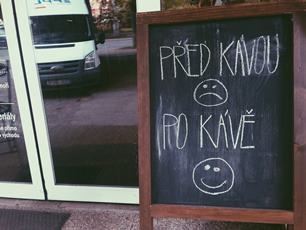 PŘED KÁVOU
PO KÁVĚ